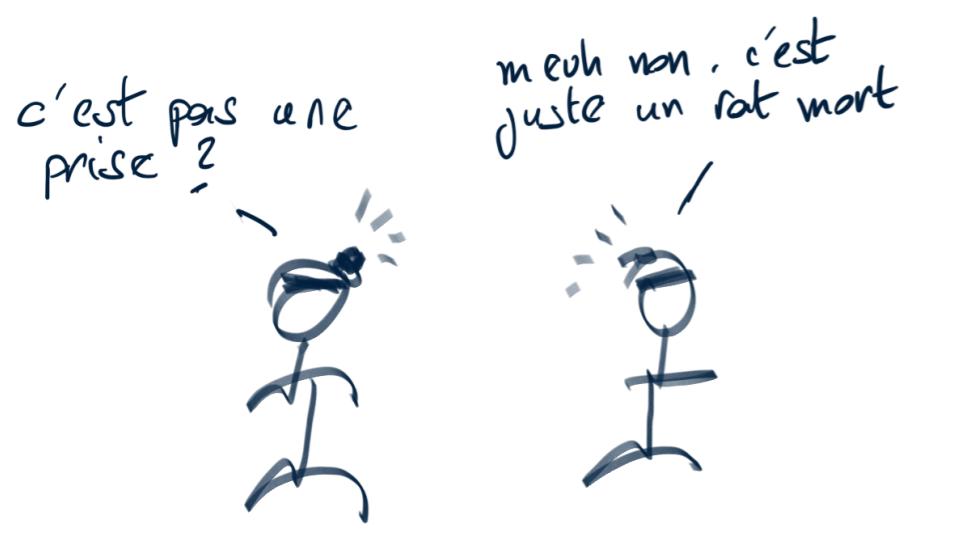 c'est pas une
prise ?
meuh non. c'est
juste un rat mort